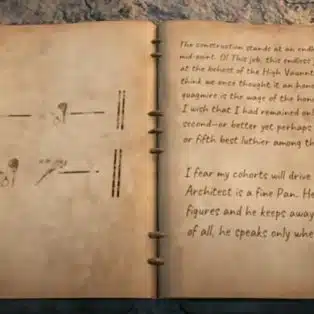 The construction stands at an endl
mid-point. O! This job, this endless
at the behest of the High Vaunt
think we once thought it an hono
quagmire is the wage of the hono
I wish that I had remained onl
second—or better yet perhaps
or fifth best luthier among th
I fear my cohorts will drive
Architect is a fine Pan. He
figures and he keeps away
of all, he speaks only whe